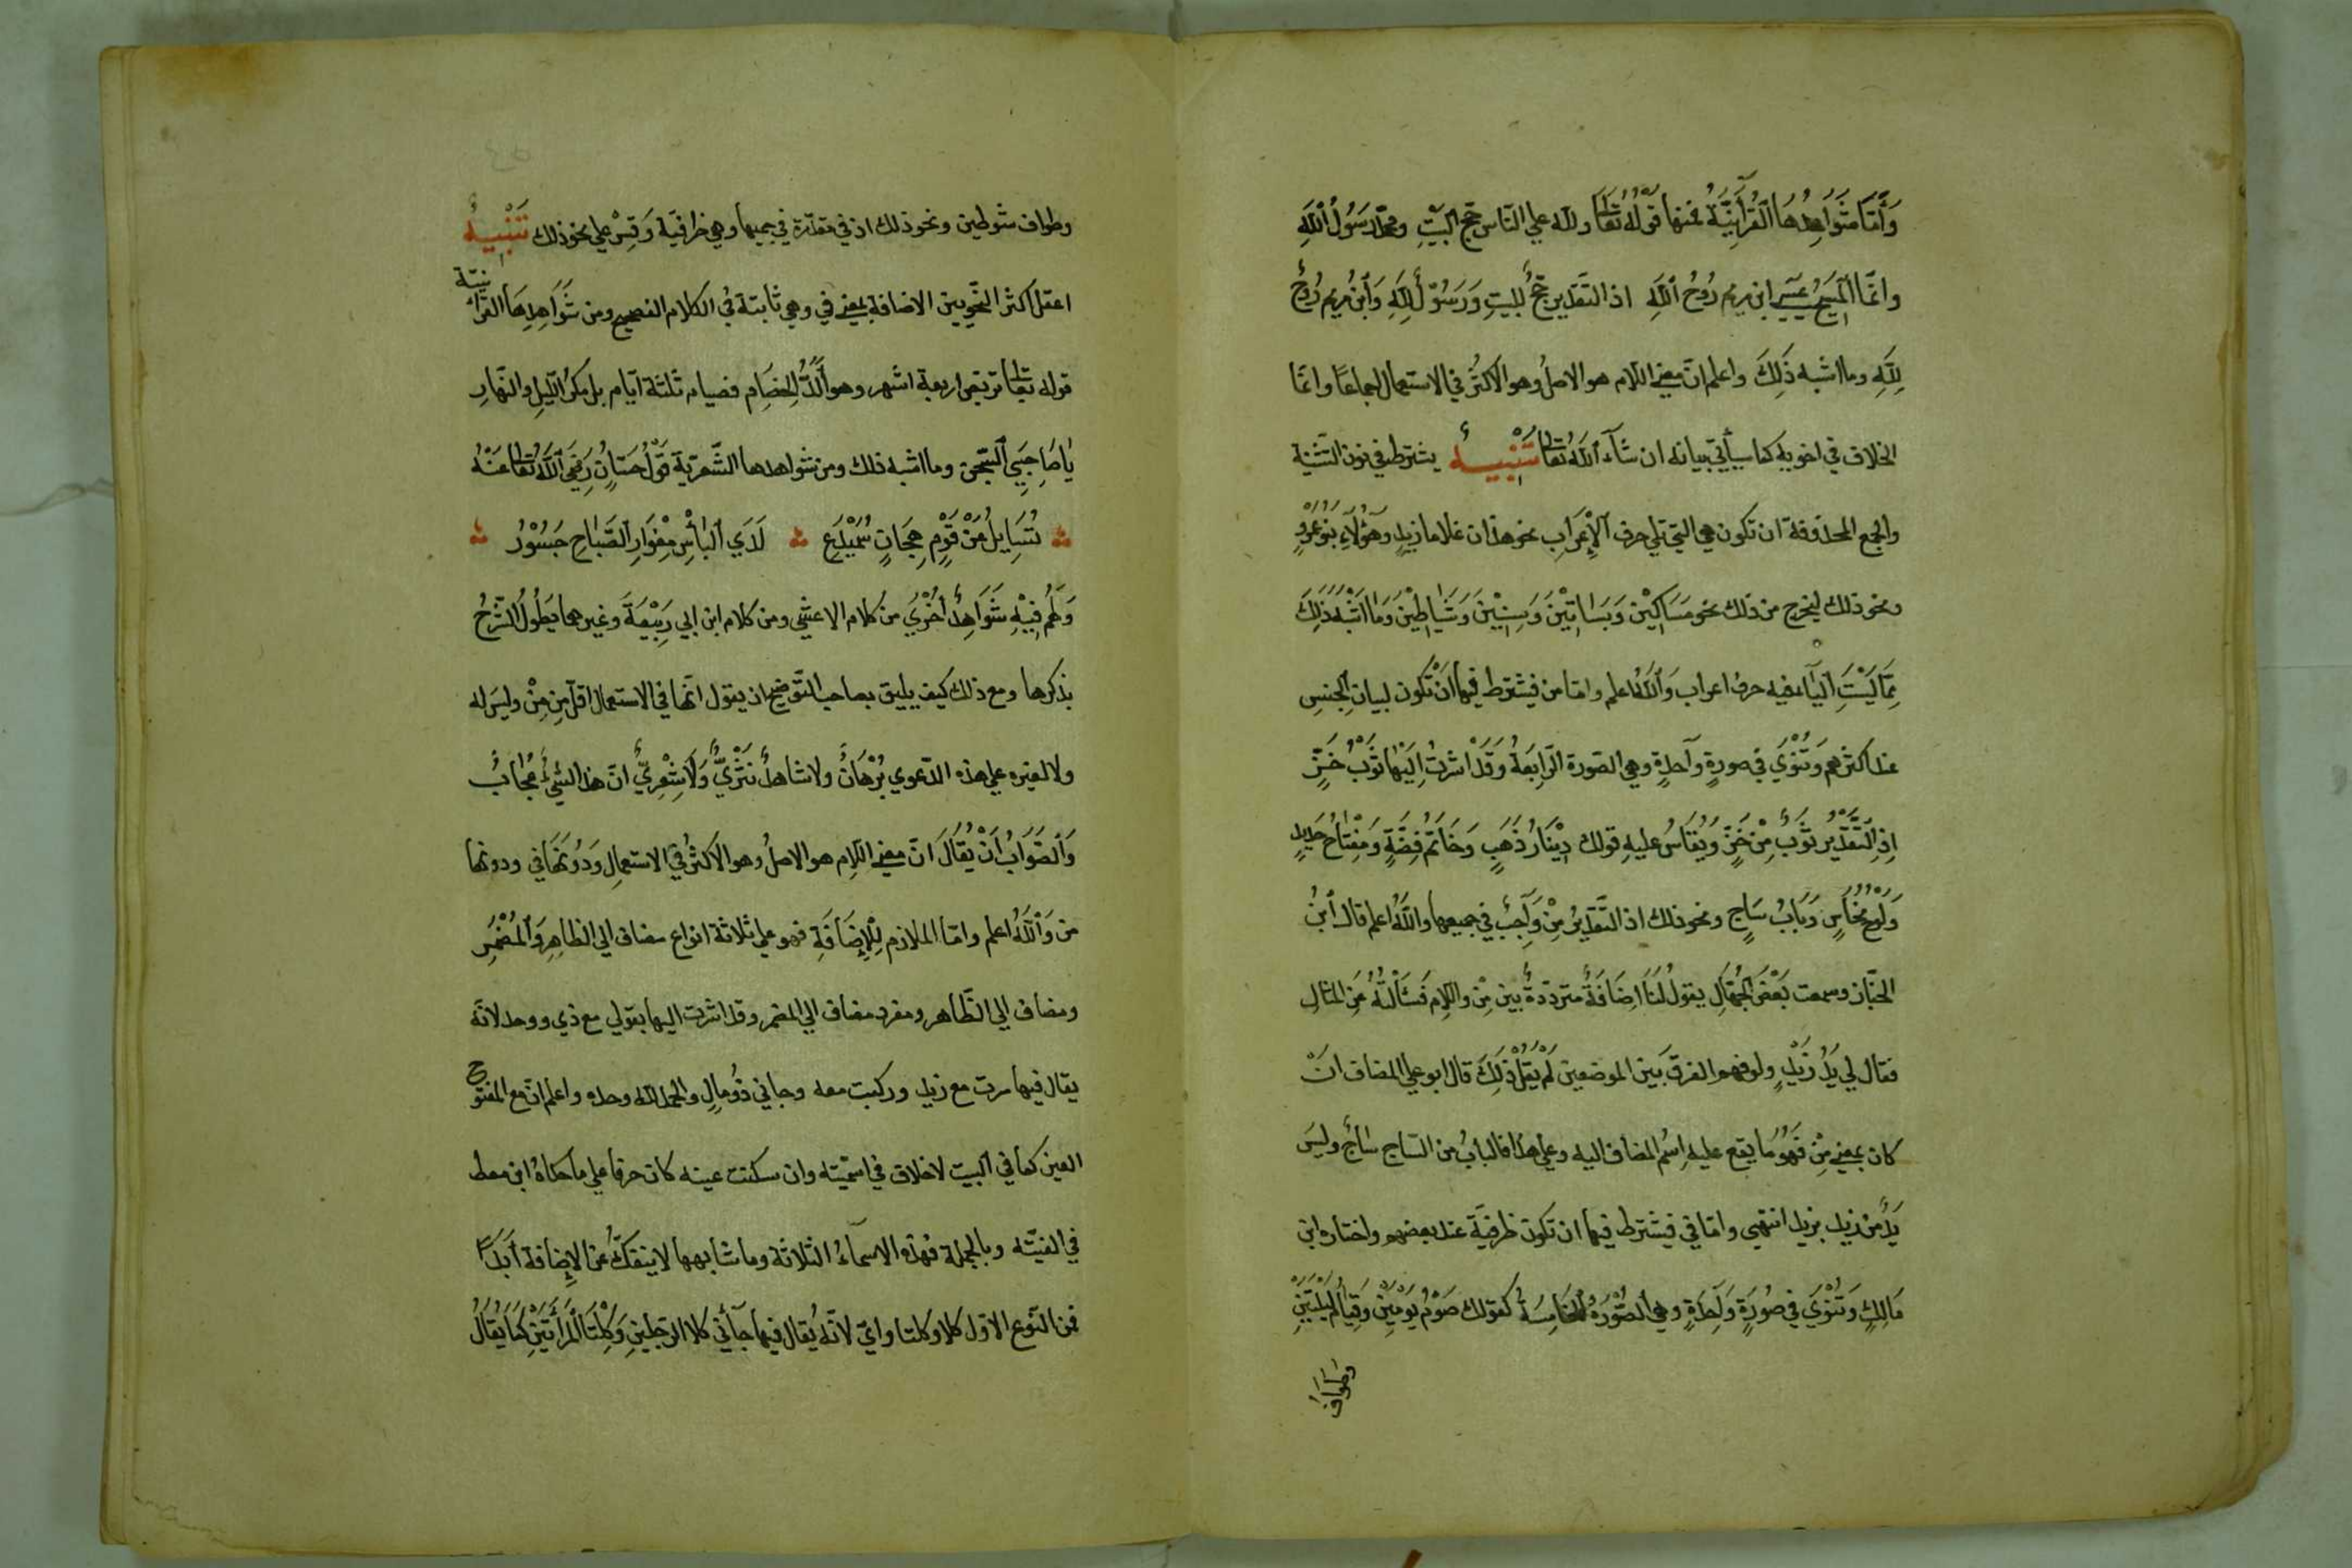 وَأَمَّا شَوَاهِدُهَا القُرْآنِيَّةُ فمنها قَوْلُهُ تَعَالى ولله علي النّاس حِجّ البَيْتِ ومحمّد رَسُولُ اللّٰهِ
وانّما المَسِيحُ عيسَي ابن مريم رُوحُ اللّٰهِ اذ التقدير حَجٌّ للبيتِ وَرَسُولٌ لِلّٰهِ وَابْن مريم رُوحٌ
لِلّٰهِ وما اشبه ذَلِكَ واعلم انّ معني اللّام هو الاصلُ وهو الاكثرُ في الاستعمال اجماعًا وانّما
الخلاف في اخويه كما سيأتي بيانه ان شآء اللّٰهُ تَعَالى تَنْبِيهٌ يشترط في نون التّثنية
والجمع المحذوفة ان تكون هي التي تلي حرف الْإِعْرَابِ نحو هذان غلاما زيدٍ وَهٰؤُلَاءِ بَنُو عَمْرٍو
ونحو ذلك ليخرج من ذلك نحو مَسَاكِيْنَ وَبَسَاتِيْنَ وَسِنِيْنَ وَشَيَاطِيْنَ وَمَا اشْبَهَ ذَلِكَ
مِمَّا لَيْسَتِ اليَاءُ فيه حرف اعراب وَاللّٰهُ اعلم وامّا من فيشترط فيها اَنْ تكون لبيان الجِنسِ
عند اكثرهم وَتُنْوَي في صورةٍ وَاحدةٍ وهي الصّورة الرَّابِعَةُ وَقَدْ اشرتُ اِلَيْهَا بثَوْبُ خَزٍّ
اِذِ التَّقْدِيْر ثَوْبٌ مِنْ خَزٍّ وَيُقَاسُ عليهِ قولك دِيْنَارُ ذَهَبٍ وَخَاتَمُ فِضَّةٍ وَمِفْتَاحُ حَدِيدٍ
وَلَوْحُ نُحَاسٍ وَبَابُ سَاجٍ ونحو ذلك اذ التَّقدِيرُ مِنْ وَاجِبٌ في جميعها واللّٰهُ اعلم قال ابْنُ
الخبّاز وسمعت بَعْضَ الجُهَّالِ يقول لَنَا اِضَافَةٌ متردّدةٌ بين مِنْ واللَّامِ فَسَأَلْتُهُ عَنِ المثالِ
فقال لي يَدُ زَيْدٍ ولو فهم الفرق بَين الموضعين لَمْ يَقُلْ ذَلِكَ قال ابو علي المضاف انْ
كان بمعني مِنْ فَهُوَ مَا يقع عليه اِسْمُ المضاف اليه وعلي هذا فالبابُ من السّاج سَاجٌ وليسَ
يَدٌ من زيد بزيد انتهي وامّا في فيشترط فيها ان تكون ظرفيّة عند بعضهم واختاره ابن
مَالِكٍ وَتُنْوَي في صُورَةٍ وَاحِدَةٍ وهي الصُّوْرَةُ الخَامِسَةُ كقولك صَوْمُ يَوْمَيْنِ وَقِيَامُ لَيْلَتَيْنِ
وَطَوَافُ
وطواف شوطين ونحو ذلك اذ في مقدّرة في جميعها وهي ظرافيّة وَقِسْ علي نحو ذلك تَنْبِيهٌ
اغفل اكثر النّحويين الاضافةِ بمعني في وهي ثابتة في الكلام الفصيح ومن شَوَاهِدِهَا القرآنيّة
قوله تَعَالى تربّص اربعة اشهر وهو أَلَدُّ الخِصَامِ فصيام ثلثة ايّام بل مكرُ اللّيلِ والنّهارِ
يَا صَاحِبَيِ السّجن وما اشبه ذلك ومن شواهدها الشّعريّة قَوْلُ حسّانٍ رَضِيَ اللّٰهُ تَعَالى عَنْهُ
تُسَايِلُ عَنْ قَوْمٍ هِجَانٍ سُمَيْدَعٍ لَدَي البَأْسِ مِغْوَارِ الصَّبَاحِ جَسُوْرُ
وَلَهُمْ فِيْهِ شَوَاهِدُ اُخْرَي من كلام الاعشي ومن كلام ابن ابي رَبِيْعَةَ وغيرهما يَطُولُ الشّرحُ
بذكرها ومع ذلك كيف يليق بصاحب التّوضيح ان يقول انّها في الاستعمال اقلّ مِن مِنْ وليسَ له
ولا لغيره علي هذه الدّعوي بُرْهَانٌ ولا شاهدٌ نَثْرِيٌّ وَلَا شِعْرِيٌّ انّ هذا لشيءٌ عُجَابٌ
وَالصَّوَابُ اَنْ يُقَالَ انّ معني اللّامِ هو الاصلُ وهو الاكثرُ في الاستعمالِ وَدُونَهَا في ودونها
من وَاللّٰهُ اعلم وامّا الملازم لِلْإِضَافَةِ فهو علي ثلاثة انواع مضاف الي الظاهِرِ وَالمُضْمَرِ
ومضاف الي الظّاهر ومفرد مضاف الي المضمر وقد اشرت اليها بقولي مع ذي ووحد لانّه
يقال فيها سرت مع زيد وركبت معه وجاني ذُو مالٍ والحمد للّه وحده واعلم انّ مع المفتوح
العين كما في البيت لاخلاق في اسميّته وان سكنت عينه كان حرفا علي ما حكاهُ ابن معط
في الفيّته وبالجملة فهذه الاسماءُ الثلاثة وما شابهها لا ينفكّ عن الإِضافة أَبَدًا
فمن النّوع الاوّل كلا وكلتا وايّ لانّه يُقال فيها جآني كلا الرّجلينِ وَكِلْتَا الْمَرْأَتَيْنِ كَمَا يُقَالُ